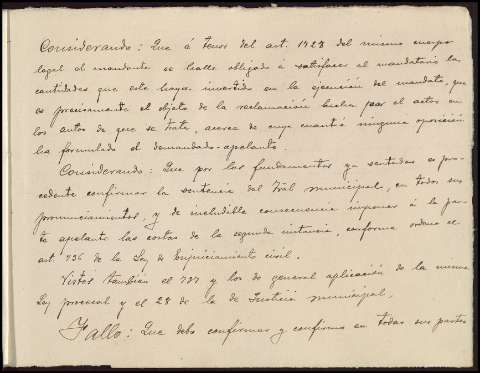 Considerando: Que á tenor del art. 1728 del mismo cuerpo
legal el mandante se halla obligado á satisfacer al mandatario las
cantidades que este haya invertido en la ejecución del mandato, que
es precisamente el objeto de la reclamación hecha por el actor en
los autos de que se trata, acerca de cuya cuantía ninguna oposición
ha formulado el demandado-apelante.
Considerando: Que por los fundamentos ya sentados es pro-
cedente confirmar la sentencia del Tral municipal, en todos sus
pronunciamientos, y de ineludible consecuencia imponer á la par-
te apelante las costas de la segunda instancia, conforme ordena el
art. 736 de la Ley de Enjuiciamiento civil.
Vistos también el 737 y los de general aplicación de la misma
Ley procesal y el 28 de la de Justicia municipal.
Fallo: Que debo confirmar y confirmo en todas sus partes